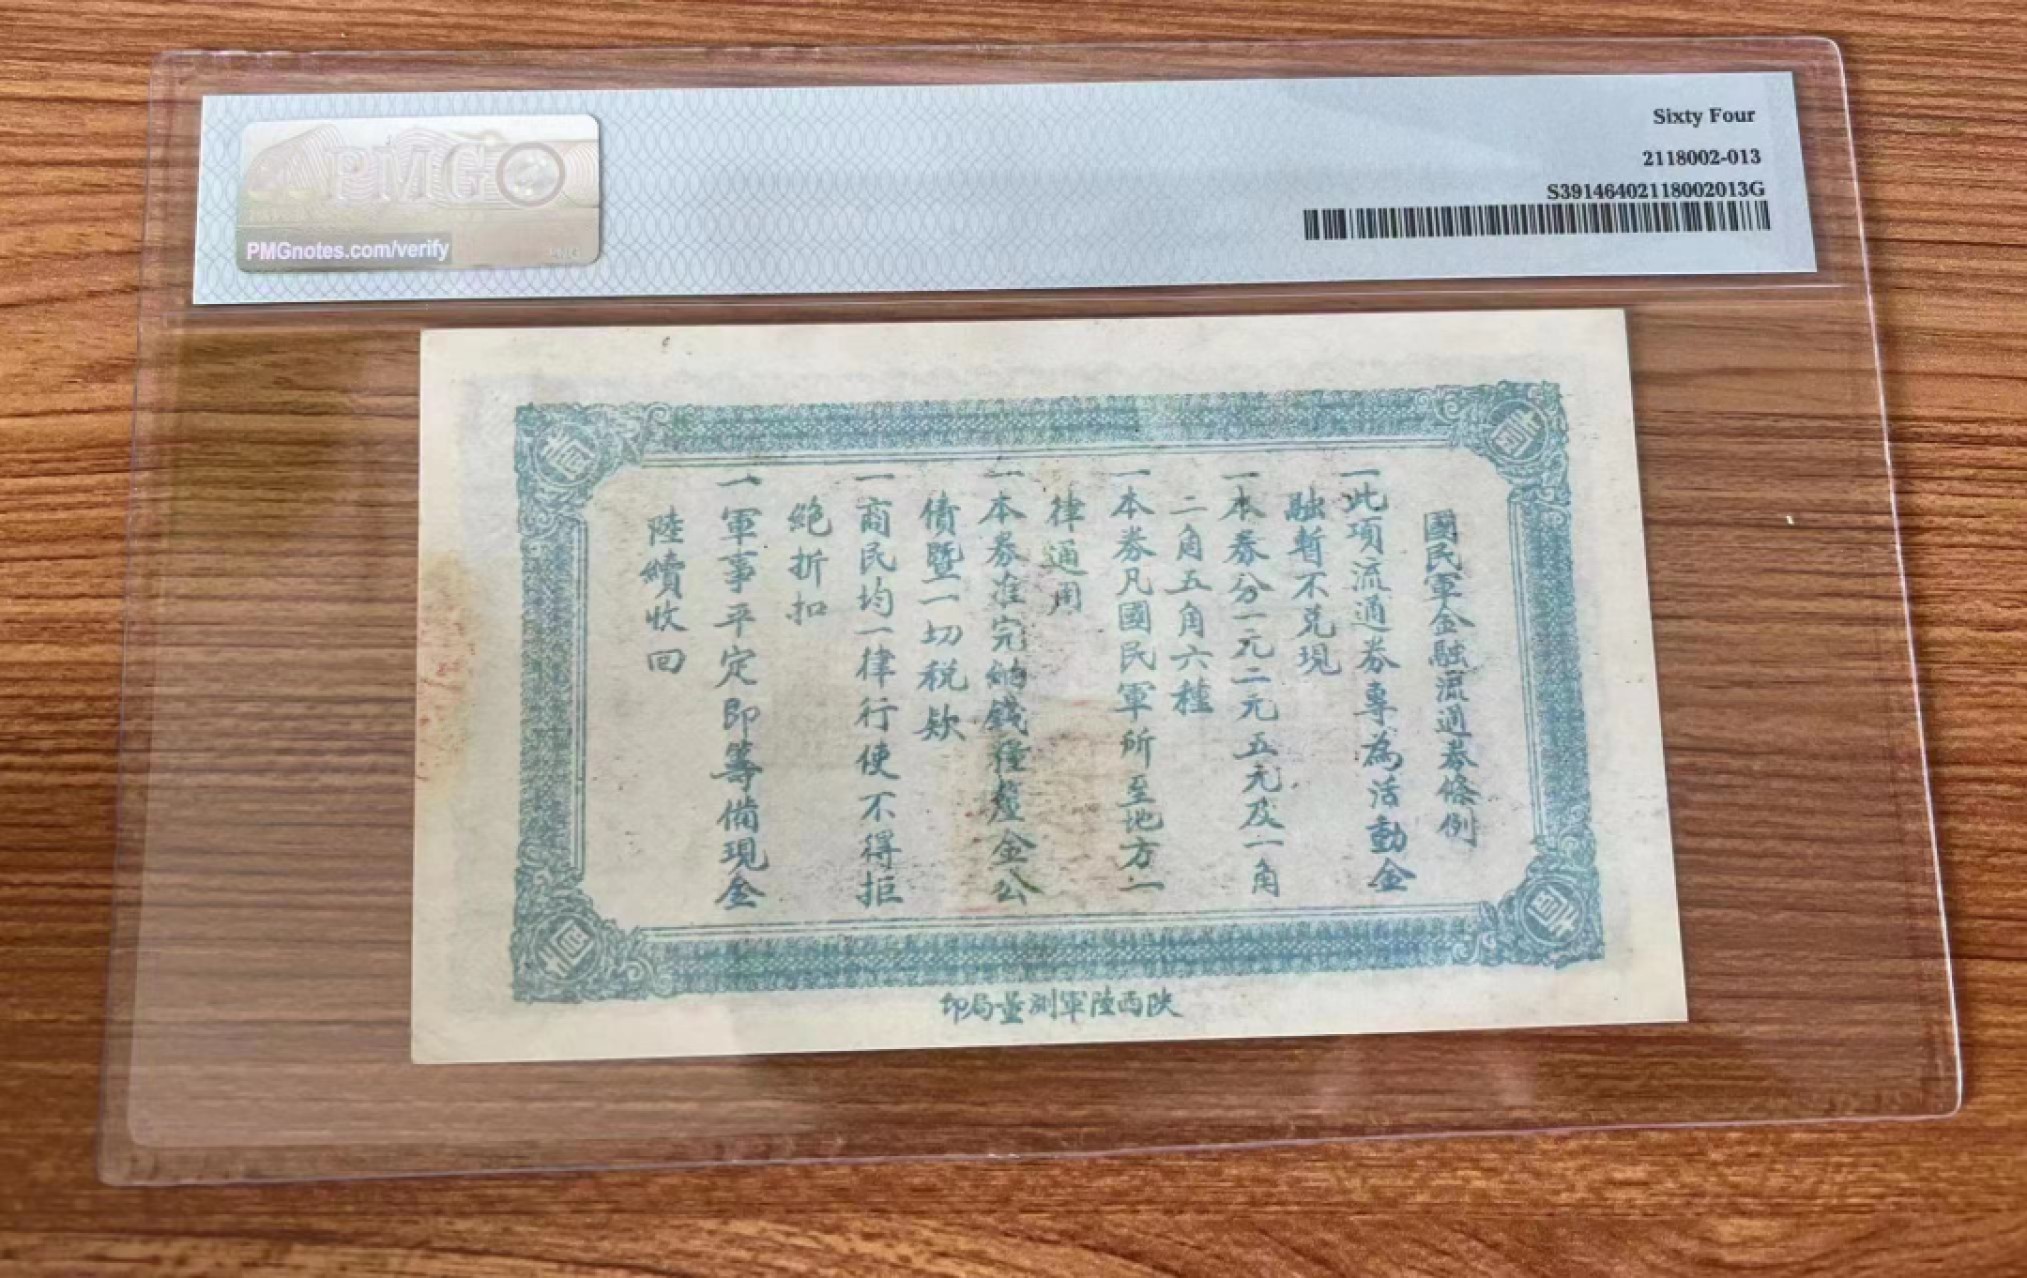 Sixty Four
2118002-013
S39146402118002013G
PMG
PMGnotes.com/verify
壹圓
壹圓
國民軍金融流通券條例
一此項流通券專為活動金
融暫不兑現
一本券分一元二元五元及一角
二角五角六種
一本券凡國民軍所至地方一
律通用
一本券准完納錢糧釐金公
債暨一切稅欵
一商民均一律行使不得拒
絶折扣
一軍事平定即籌備現金
陸續收回
壹圓
壹圓
陜西陸軍測量局印